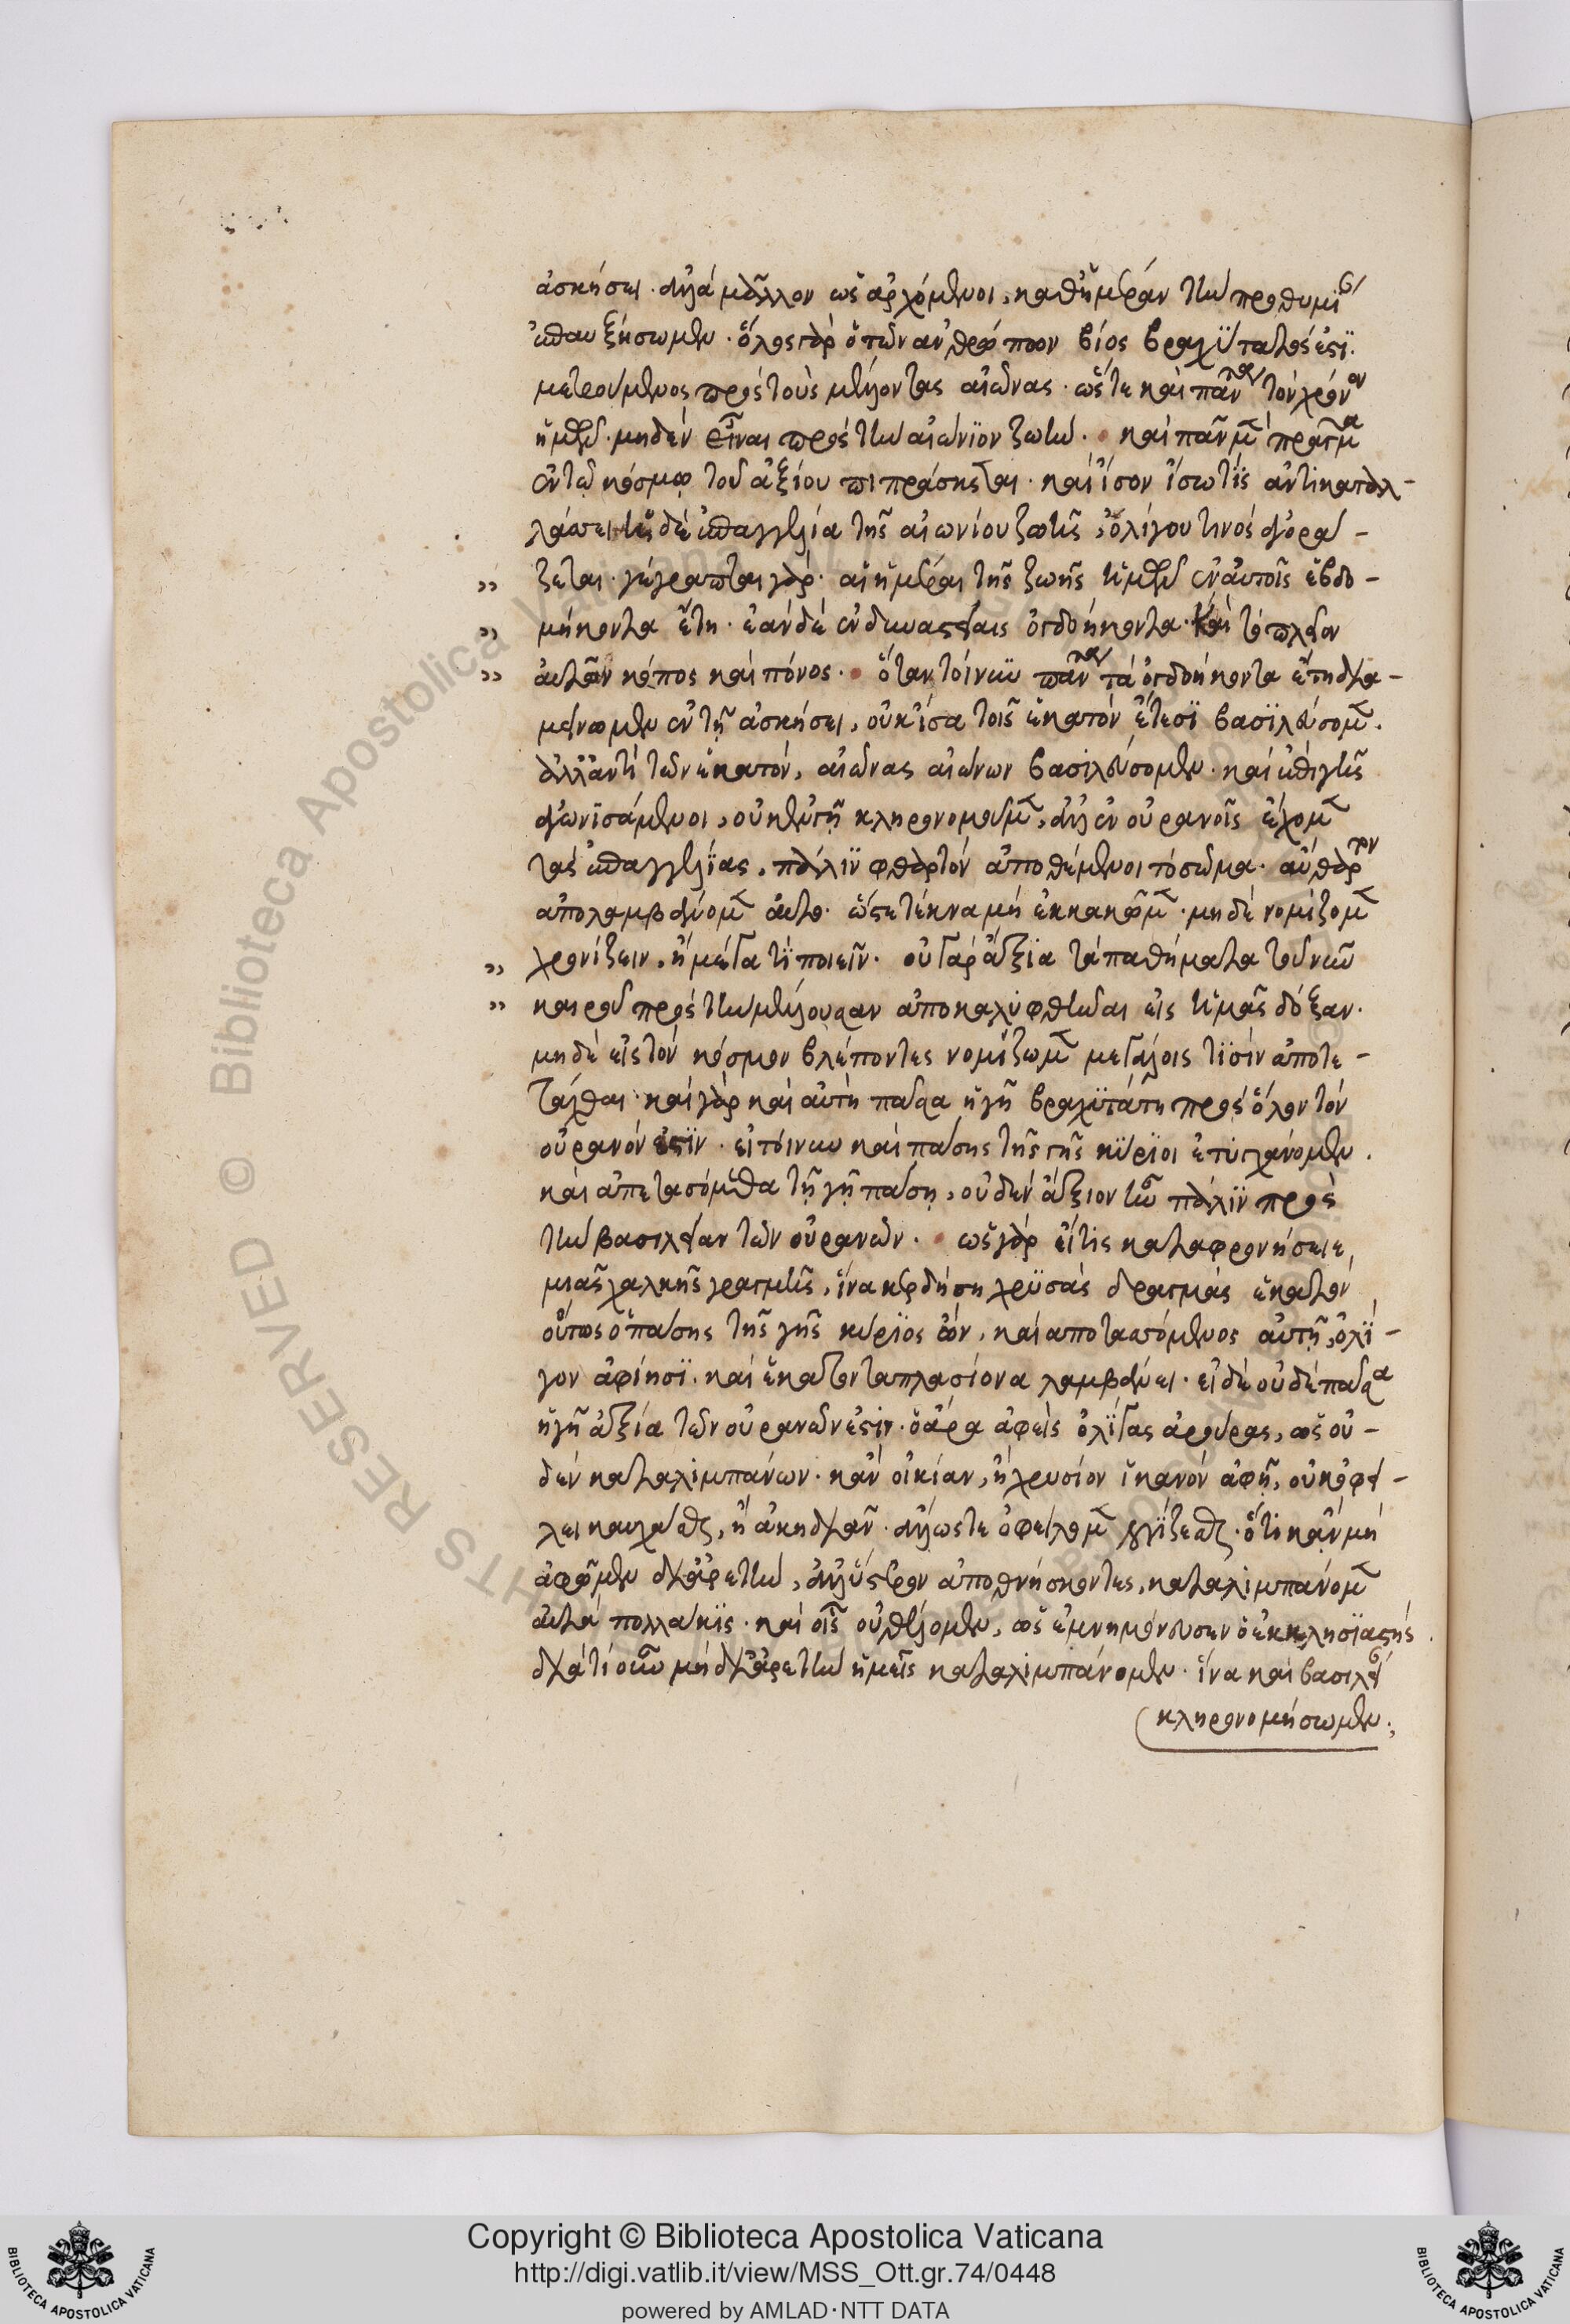 ἀσκήσει· ἀλλὰ μᾶλλον ὡς ἀρχόμενοι, καθημέραν τὴν προθυμί
ἐπαυξήσωμεν· ὅλος γὰρ ὁ τῶν ἀνθρώπων βίος βραχύτατός ἐστι.
μετρούμενος πρὸς τοὺς μέλλοντας αἰῶνας· ὥστε καὶ πάντα τὸν χρόνον
ἡμῶν· μηδὲν εἶναι πρὸς τὴν αἰώνιον ζωήν. καὶ πᾶν μὲν πράγμα
ἐν τῷ κόσμῳ τοῦ ἀξίου πιπράσκεται· καὶ ἴσον ἴσω τὶς ἀντικαταλ-
λάσσει· ἡ δὲ ἐπαγγελία τῆς αἰωνίου ζωῆς, ὀλίγου τινὸς ἀγορά-
ζεται· γέγραπται γάρ· αἱ ἡμέραι τῆς ζωῆς ἡμῶν ἐν αὐτοῖς ἑβδο-
μήκοντα ἔτη· ἐὰν δὲ ἐν δυναστείαις ὀγδοήκοντα· καὶ τὸ πλεῖον
αὐτῶν κόπος καὶ πόνος. ὅταν τοίνυν πάντα τὰ ὀγδοήκοντα ἔτη δια-
μείνωμεν ἐν τῇ ἀσκήσει, οὐκ ἴσα τοῖς ἑκατὸν ἔτεσι βασιλεύσομεν.
ἀλλ' ἀντὶ τῶν ἑκατόν, αἰῶνας αἰώνων βασιλεύσομεν· καὶ ἐπὶ γῆς
ἀγωνισάμενοι, οὐκ ἐν γῇ κληρονομοῦμεν, ἀλλ' ἐν οὐρανοῖς ἔχομεν
τὰς ἐπαγγελίας, πάλιν φθαρτὸν ἀποθέμενοι τὸ σῶμα· ἄφθαρτον
ἀπολαμβάνομεν αὐτό· ὥστε τέκνα μὴ ἐκκακῶμεν· μηδὲ νομίζομεν
χρονίζειν, ἢ μέγα τι ποιεῖν· οὐ γὰρ ἄξια τὰ παθήματα τοῦ νῦν
καιροῦ πρὸς τὴν μέλλουσαν ἀποκαλυφθῆναι εἰς ἡμᾶς δόξαν.
μηδὲ εἰς τὸν κόσμον βλέποντες νομίζωμεν μεγάλοις τισὶν ἀποτε-
τάχθαι· καὶ γὰρ καὶ αὐτὴ πᾶσα ἡ γῆ βραχυτάτη πρὸς ὅλον τὸν
οὐρανόν ἐστιν· εἰ τοίνυν καὶ πάσης τῆς γῆς κύριοι ἐτυγχάνομεν.
καὶ ἀπετασσόμεθα τῇ γῇ πάσῃ, οὐδὲν ἄξιον ἦν πάλιν πρὸς
τὴν βασιλείαν τῶν οὐρανῶν. ὡς γὰρ εἴ τις καταφρονήσειε
μιᾶς χαλκῆς δραγμῆς, ἵνα κερδήσῃ χρυσὰς δραγμὰς ἑκατόν,
οὕτως ὁ πάσης τῆς γῆς κύριος ὤν, καὶ αποτασσόμενος αὐτῇ, ὀλί-
γον ἀφίησι· καὶ ἑκατονταπλασίονα λαμβάνει· εἰ δὲ οὐδὲ πᾶσα
ἡ γῆ ἀξία τῶν οὐρανῶν ἐστιν· ὁ ἄρα ἀφεὶς ὀλίγας ἀρούρας, ὡς οὐ-
δὲν καταλιμπάνων· κἂν οἰκίαν, ἢ χρυσίον ἱκανὸν ἀφῇ, οὐκ ὀφεί-
λει καυχᾶσθαι, ἢ ἀκηδιᾶν· ἄλλως τε ὀφείλομεν λογίζεσθαι· ὅτι κἂν μὴ
ἀφῶμεν δι' ἀρετήν, ἀλλ' ὕστερον ἀποθνήσκοντες, καταλιμπάνομεν
αὐτὰ πολλάκις· καὶ οἷς οὐ θέλομεν, ὡς ἐμνημόνευσεν ὁ ἐκκλησιαστής.
διὰ τί οὖν μὴ δι' ἀρετὴν ἡμεῖς καταλιμπάνομεν· ἵνα καὶ βασιλεί
κληρονομήσωμεν·
Copyright © Biblioteca Apostolica Vaticana
http://digi.vatlib.it/view/MSS_Ott.gr.74/0448
powered by AMLAD·NTT DATA